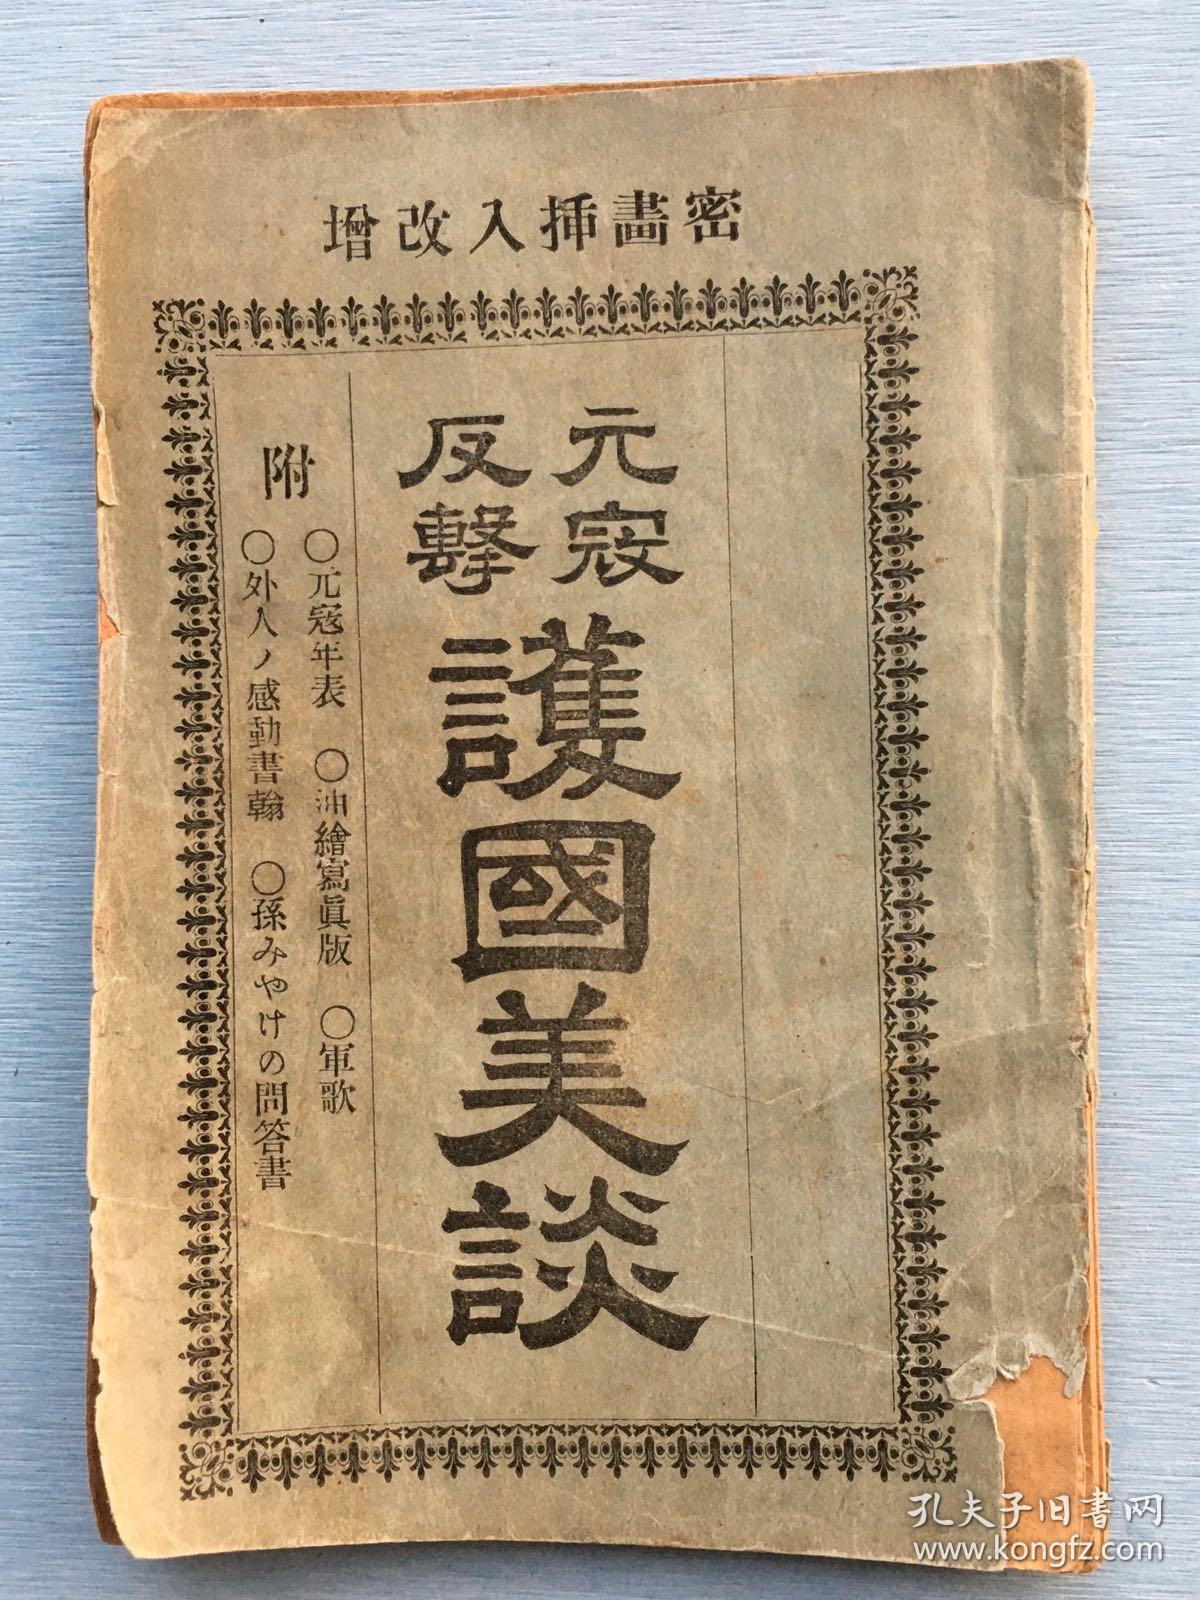 密畵挿入改增
元寇
反擊
護國美談
附
〇元寇年表 〇油繪寫眞版 〇軍歌
〇外人ノ感動書翰 〇孫みやけの問答書
孔夫子旧书网
www.kongfz.com